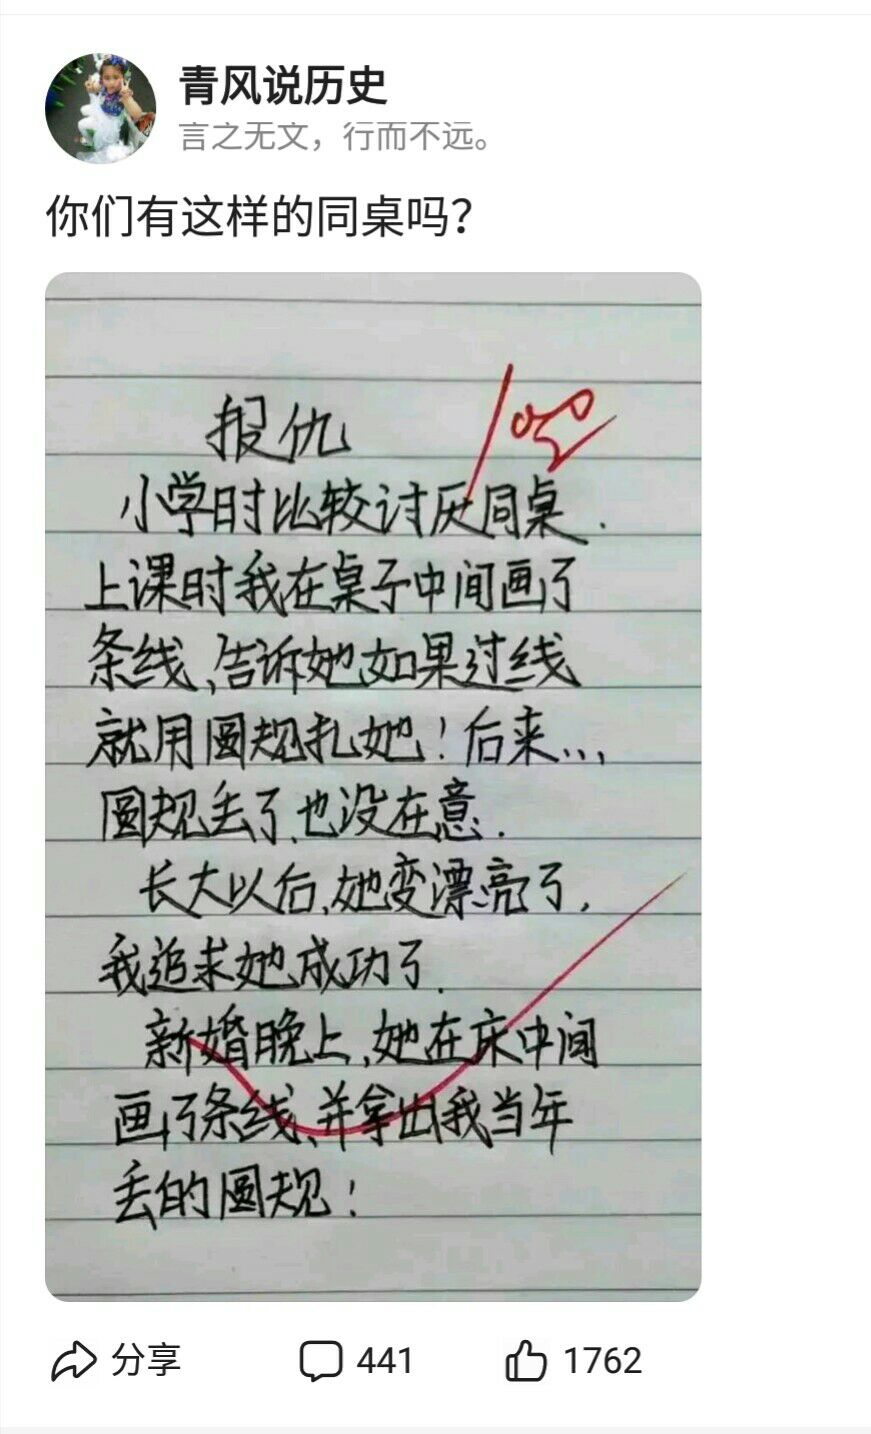 青风说历史
言之无文，行而不远。
你们有这样的同桌吗？
报仇
小学时比较讨厌同桌.
上课时我在桌子中间画了
条线,告诉她如果过线
就用圆规扎她！后来...,
圆规丢了,也没在意.
长大以后,她变漂亮了,
我追求她成功了.
新婚晚上,她在床中间
画了条线、并拿出我当年
丢的圆规！
分享
441
1762